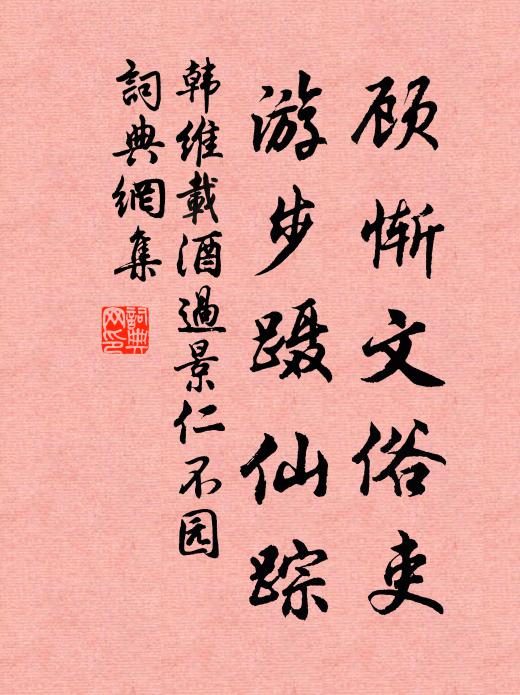 顾惭文俗吏
游步蹑仙踪
韩维載酒過景仁不园
詞典網集
詞典網印